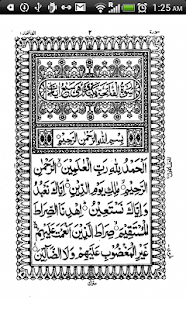 1:25 AM
بِسْمِ اللهِ الرَّحْمٰنِ الرَّحِيْمِ
اَلْحَمْدُ لِلّٰهِ رَبِّ الْعٰلَمِيْنَ الرَّحْمٰنِ
الرَّحِيْمِ مٰلِكِ يَوْمِ الدِّيْنِ اِيَّاكَ نَعْبُدُ
وَاِيَّاكَ نَسْتَعِيْنُ اِهْدِنَا الصِّرَاطَ
الْمُسْتَقِيْمَ صِرَاطَ الَّذِيْنَ اَنْعَمْتَ عَلَيْهِمْ
غَيْرِ الْمَغْضُوْبِ عَلَيْهِمْ وَلَا الضَّآلِّيْنَ